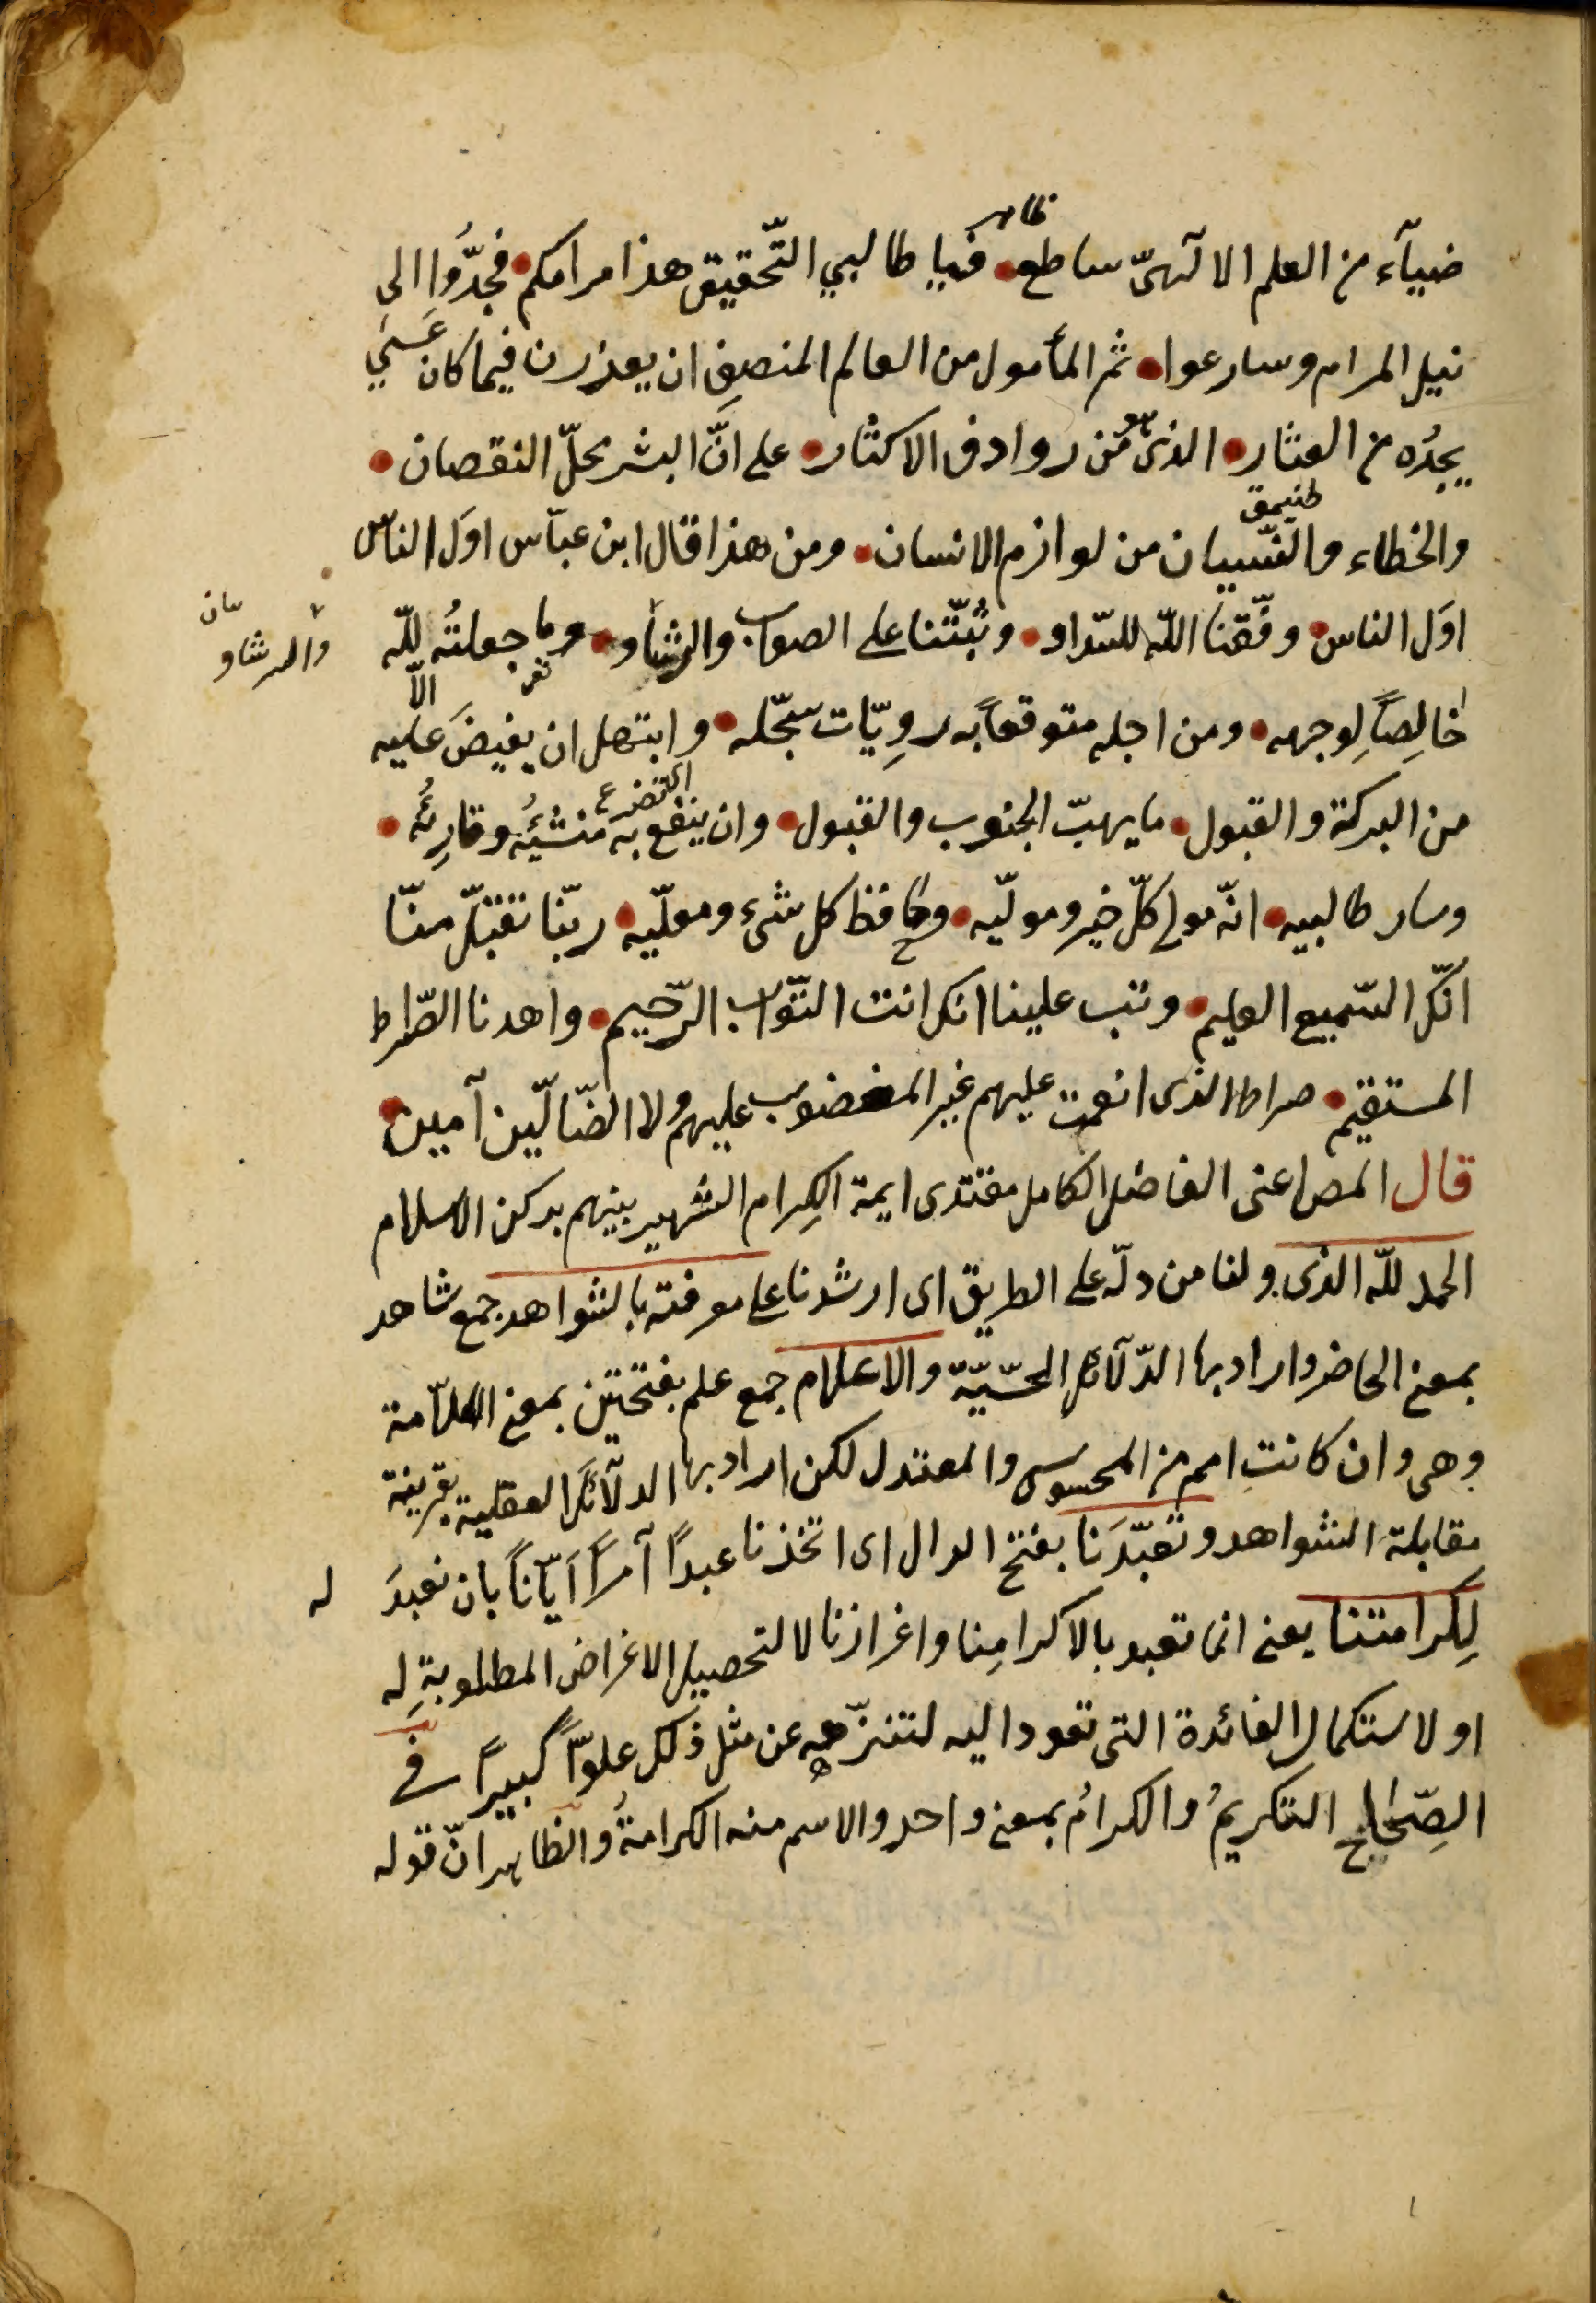 ظاهر
ضيآء من العلم الالٓهىّ ساطع فيا طالبي التّحقيق هذا مرامكم فجدُّوا الى
نيل المرام وسارعوا ثم المأمول من العالم المنصف ان يعذرن فيما كان عَسَى
يجدُه من العثار الذى هو من روادف الاكثار على انّ البشر محلّ النقصان
والخطاء والنّسيان من لوازم الانسان ومن هذا قال ابن عبّاس اوَل الناس
اوَل الناس وفّقنا اللّه للسّداد وثبّتنا على الصواب والرشاد وما جعلتُه للّه
والرشاد
الّا
خالِصاً لِوجهه ومن اجله متوقعاً به رويّات سجّله وابتهل ان يفيضَ عليه
اى اتضرع
من البركة والقبول ما يهبّ الجنوب والقبول وان ينفع به منشيُه وقارِئه
وسار طالبيه انّه مولى كلّ خير وموليّه وحافظ كل شىء ومعليّه ربّنا تقبّل منّا
انّك السّميع العليم وتب علينا انك انت التّواب الرّحيم واهدنا الصّراط
المستقيم صراط الذى انعمت عليهم غير المغضوب عليهم ولا الضّالّين آمين
قال المص اعنى الفاضل الكامل مقتدى ايمة الكِرام الشهير بينهم بركن الاسلام
الحمد للّه الذى ولنا من دلّه على الطريق اى ارشدنا على معرفته بالشواهد جمع شاهد
بمعنى الحاضر واراد بها الدّلآئل الحسّيّة والاعلام جمع علم بفتحتين بمعنى العلّامة
وهى وان كانت اعم من المحسوس والمعتدل لكن اراد بها الدلآئل العقلية بقرينة
مقابلة الشواهد وتعبّدَنا بفتح الدال اى اتخذنا عبداً آمراً ايّاناً بان نعبدَ له
لِكرامتنا يعنى انما تعبد بالاكرامِنا واغرازنا لا لتحصيل الاغراض المطلوبةِ له
او لاستكمال الفائدة التى تعود اليه لتنزّهه عن مثل ذلك علوّاً كبيراً فى
الصِّحاح التكريمُ والكرامُ بمعنى واحد والاسم منه الكرامةُ والظاهر انّ قوله